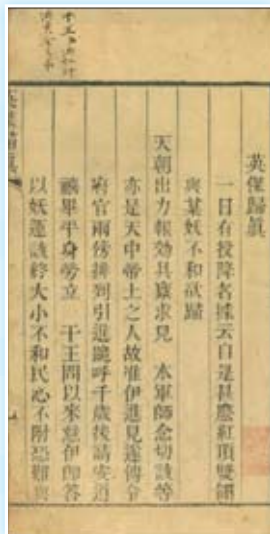 英傑歸眞
一日有投降者據云自是甚麼紅頂雙翎
與某妖不和欲歸
天朝出力報効具稟求見 本軍師念切該等
亦是天中帝土之人故准伊進見遂傳令
府官兩傍排列引進跪呼千歲後請安道
畢平身旁立 干王問以來意伊卽答
以妖運該終大小不和民心不附恐難與